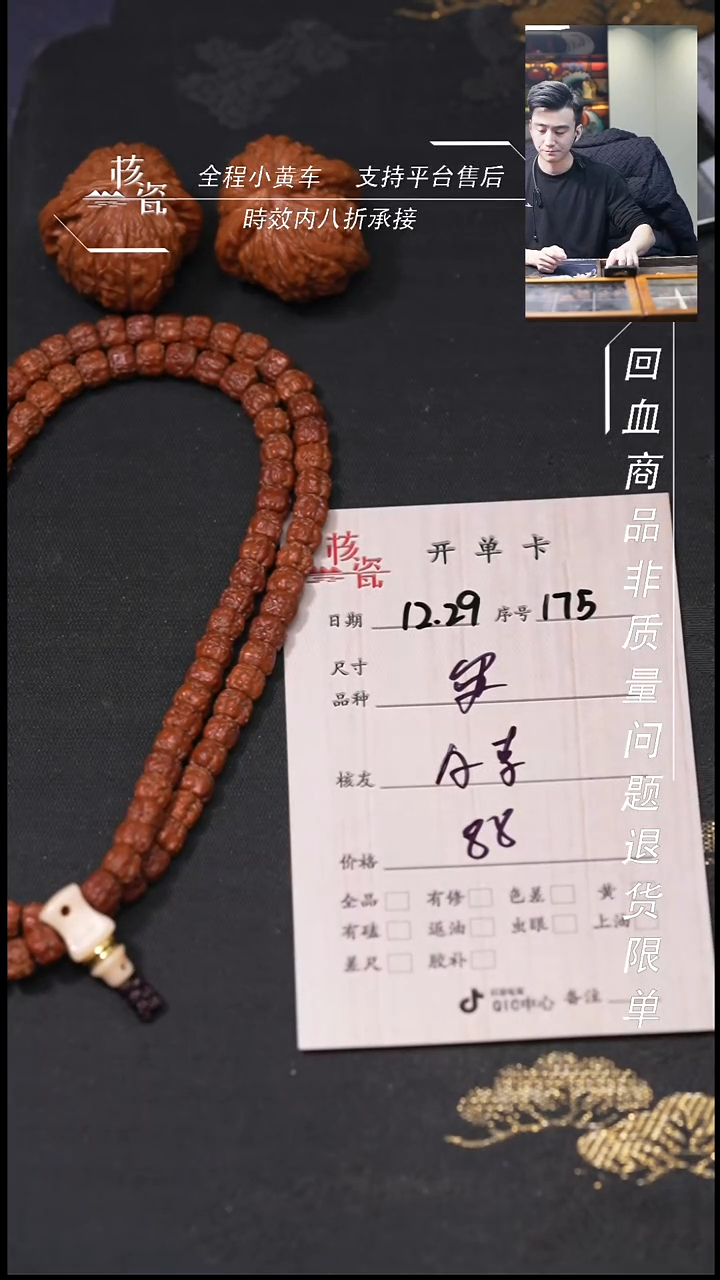 核瓷
全程小黄车 支持平台售后
時效内八折承接
回血商品非质量问题退货限单
核瓷
开单卡
日期 12.29 序号 175
尺寸
品种
核友
价格 88
全品 有修 色差 黄
有磕 返油 虫眼 上油
差尺 胶补
QIC中心 备注